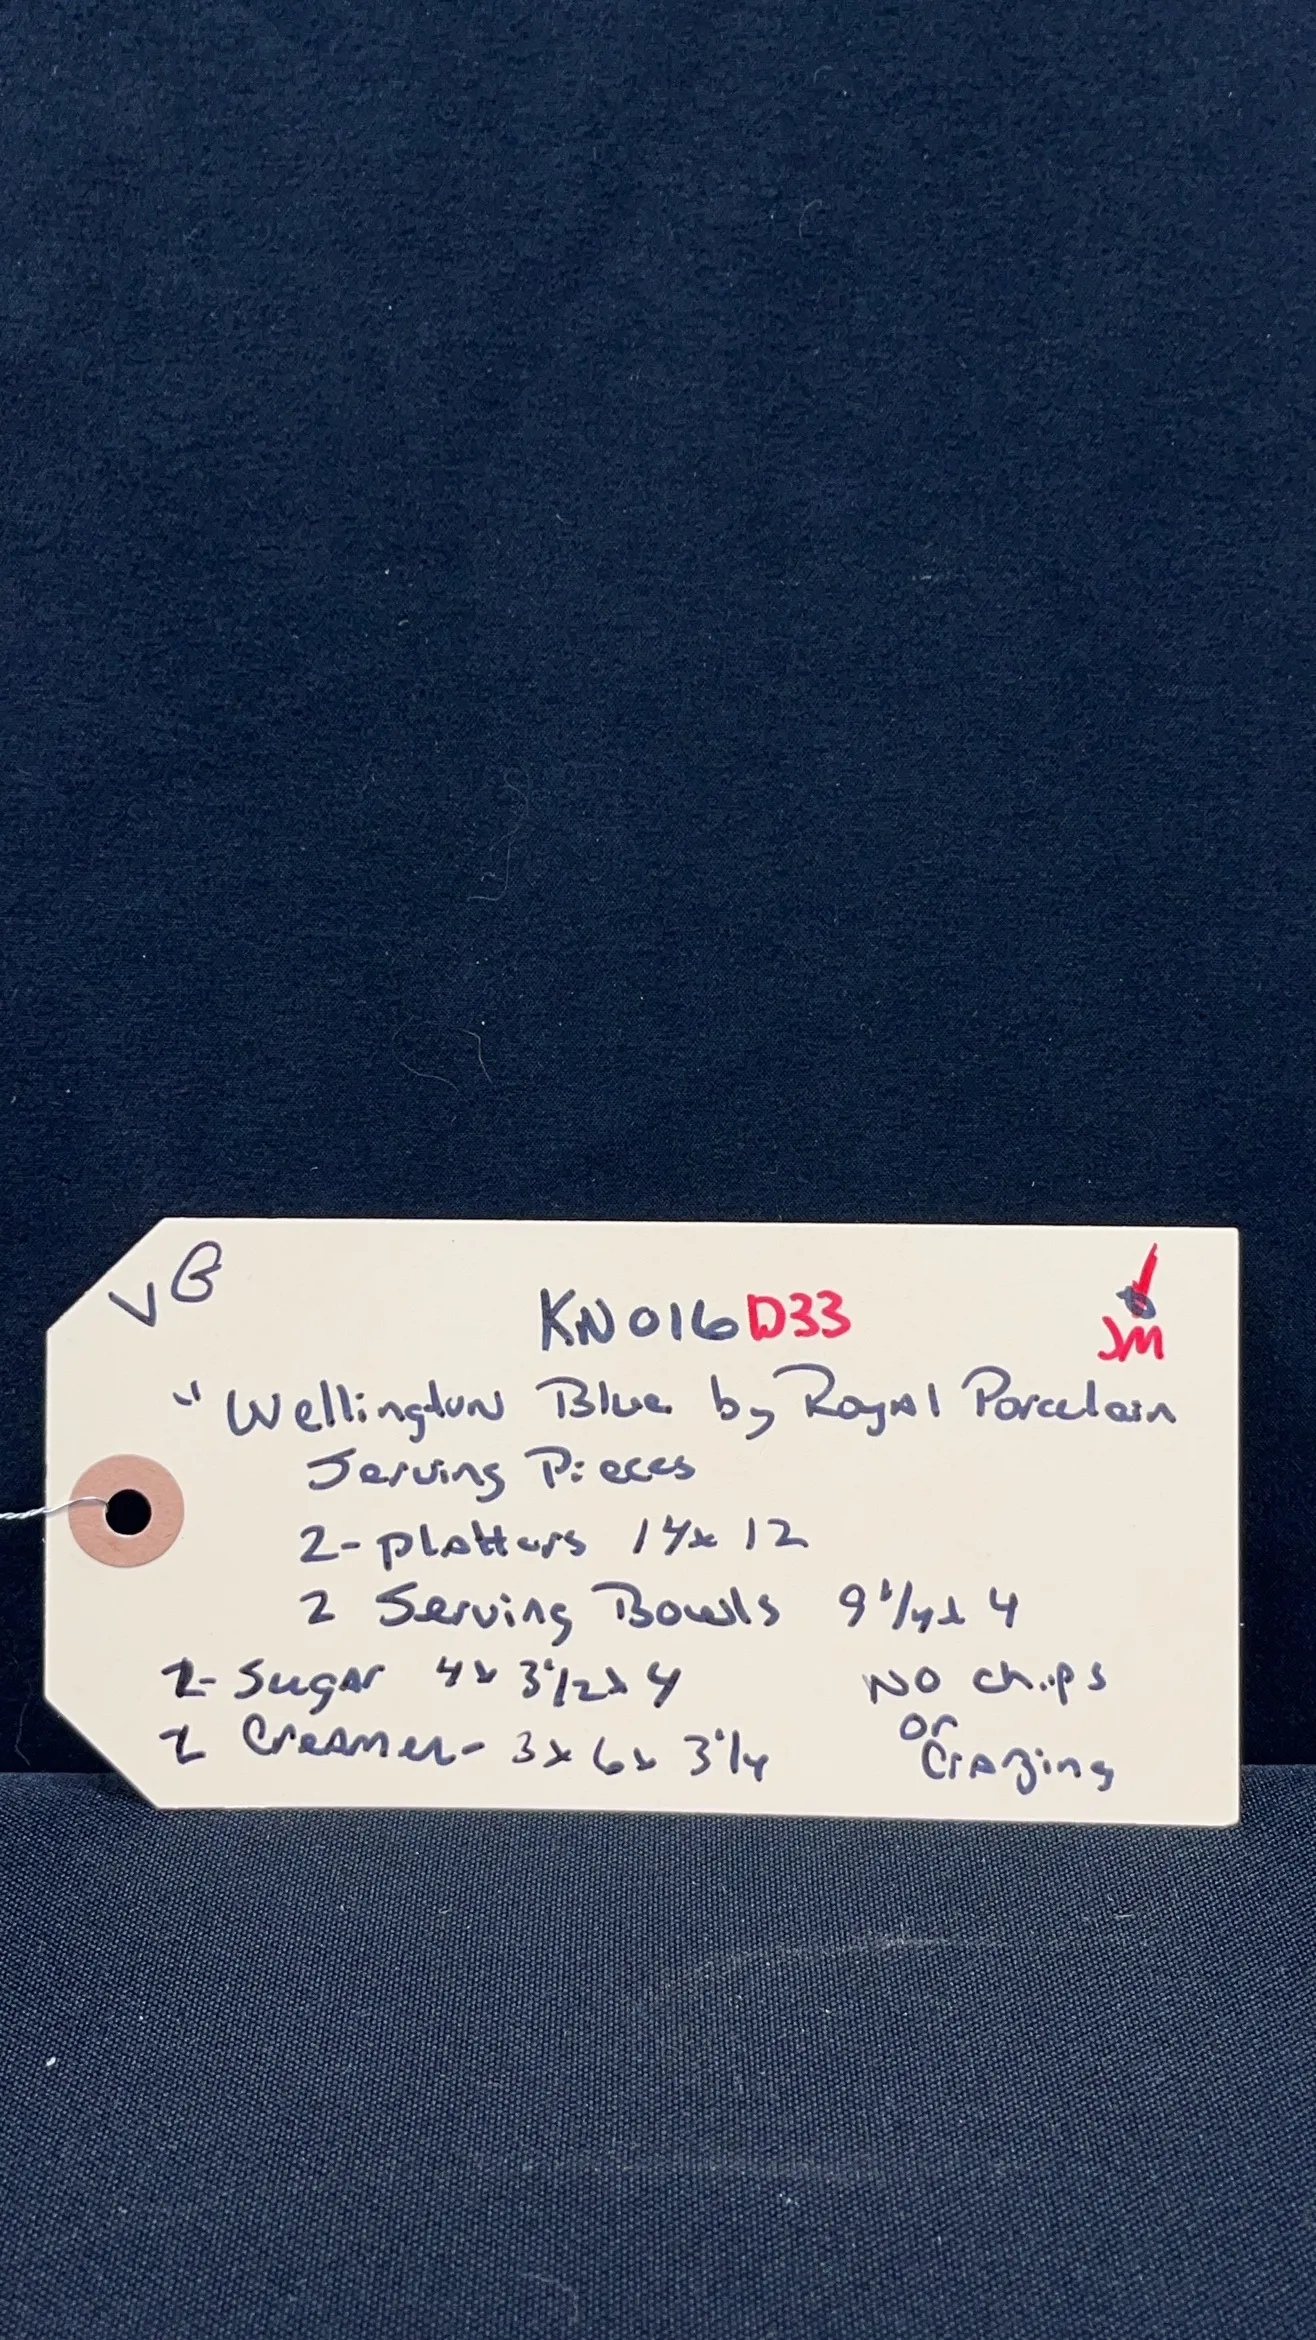 VB
KN016D33
JM
"Wellington Blue by Royal Porcelain
Serving Pieces
2- platters 14x 12
2 Serving Bowls 9 1/4 x 4
2- Sugar 4x 3 1/2 x 4
No chips
2 Creamer- 3x 6x 3 1/4
or
Crazing